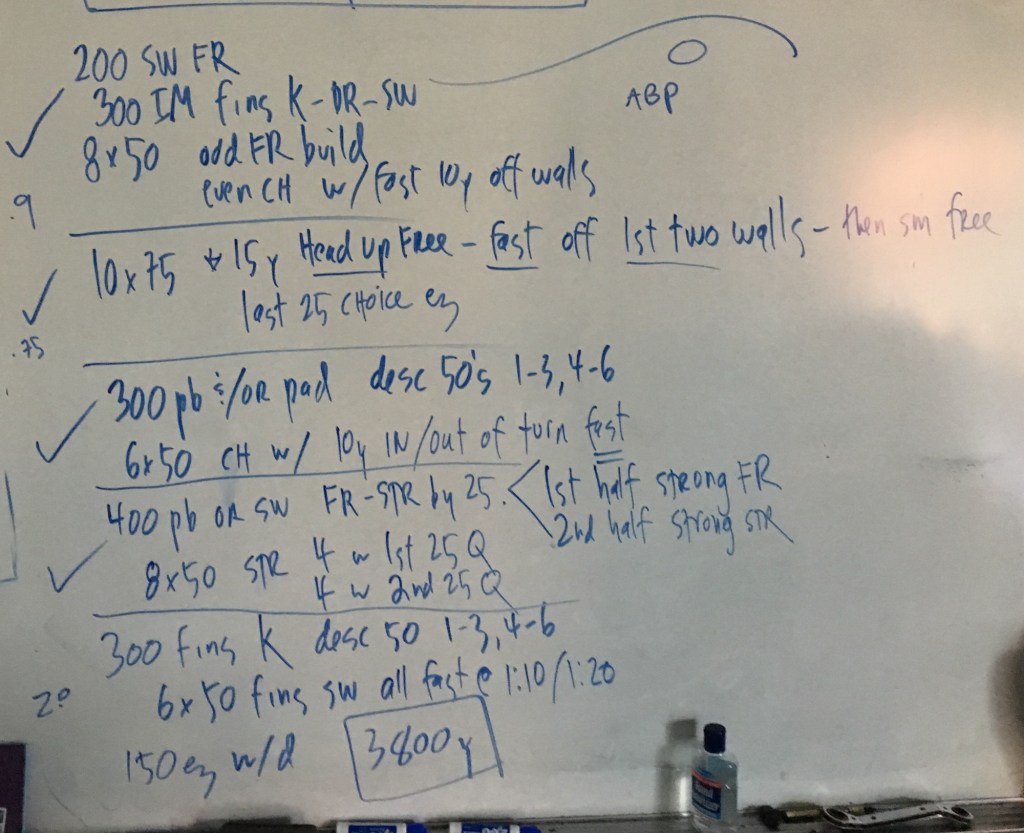 200 SW FR
300 IM fins K-DR-SW
ABP
8x50 odd FR build
even CH w/ fast 10y off walls
.9
10x75 15y Head up Free - fast off 1st two walls - then sm free
last 25 CHOICE ez
.75
300 pb &/OR pad desc 50's 1-3, 4-6
6x50 CH w/ 10y IN/out of turn fast
400 pb OR SW FR-STR by 25. 1st half strong FR
2nd half strong STR
8x50 STR 4 w 1st 25 Q
4 w 2nd 25 Q
300 fins K desc 50 1-3, 4-6
6x50 fins SW all fast @ 1:10/1:20
150 ez w/d 3800y